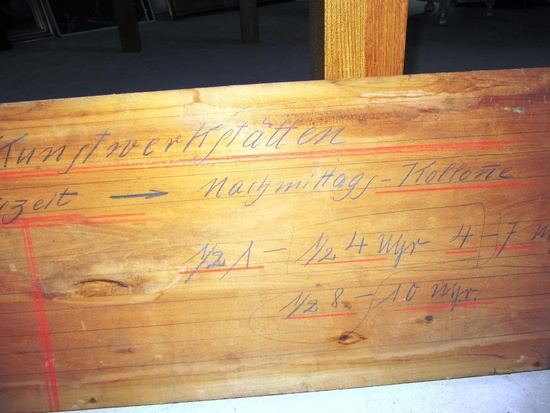 Kunstwerkstätten
zeit → Nachmittags-Kollone
1/2 1 - 1/2 4 Uhr 4-7
1/2 8 - 10 Uhr.